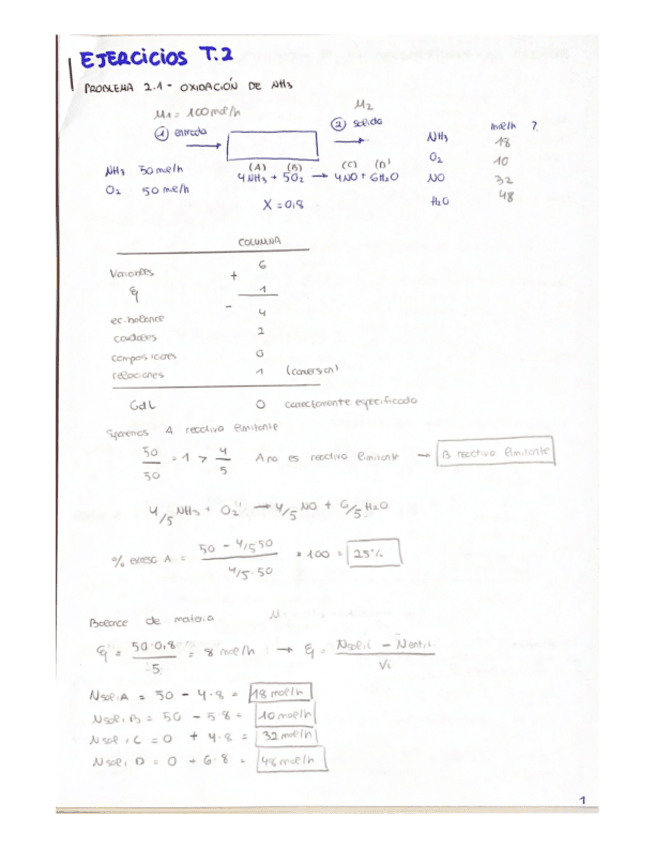 EJERCICIOS T.2
PROBLEMA 2.1 - OXIDACIÓN DE NH3
M1 = 100 mol/h
M2
1 entrada
2 salida
mol/h ?
NH3 50 mol/h
O2 50 mol/h
(A) (B) (C) (D)
4NH3 + 5O2 → 4NO + 6H2O
X = 0,8
NH3 18
O2 10
NO 32
H2O 48
COLUMNA
Variables 6
+
ξ 1
-
ec. balance 4
caudales 2
composiciones 0
relaciones 1 (conversión)
Gdl 0 correctamente especificado
A reactivo limitante
50/50 = 1 > 4/5 A no es reactivo limitante → B reactivo limitante
4/5 NH3 + O2 → 4/5 NO + 6/5 H2O
% exceso A = (50 - 4/5·50) / (4/5·50) * 100 = 25%
Balance de materia
ξ = 50·0,8 / 5 = 8 mol/h → ξ = (Nsal,i - Nent,i) / Vi
Nsal,A = 50 - 4·8 = 18 mol/h
Nsal,B = 50 - 5·8 = 10 mol/h
Nsal,C = 0 + 4·8 = 32 mol/h
Nsal,D = 0 + 6·8 = 48 mol/h
1